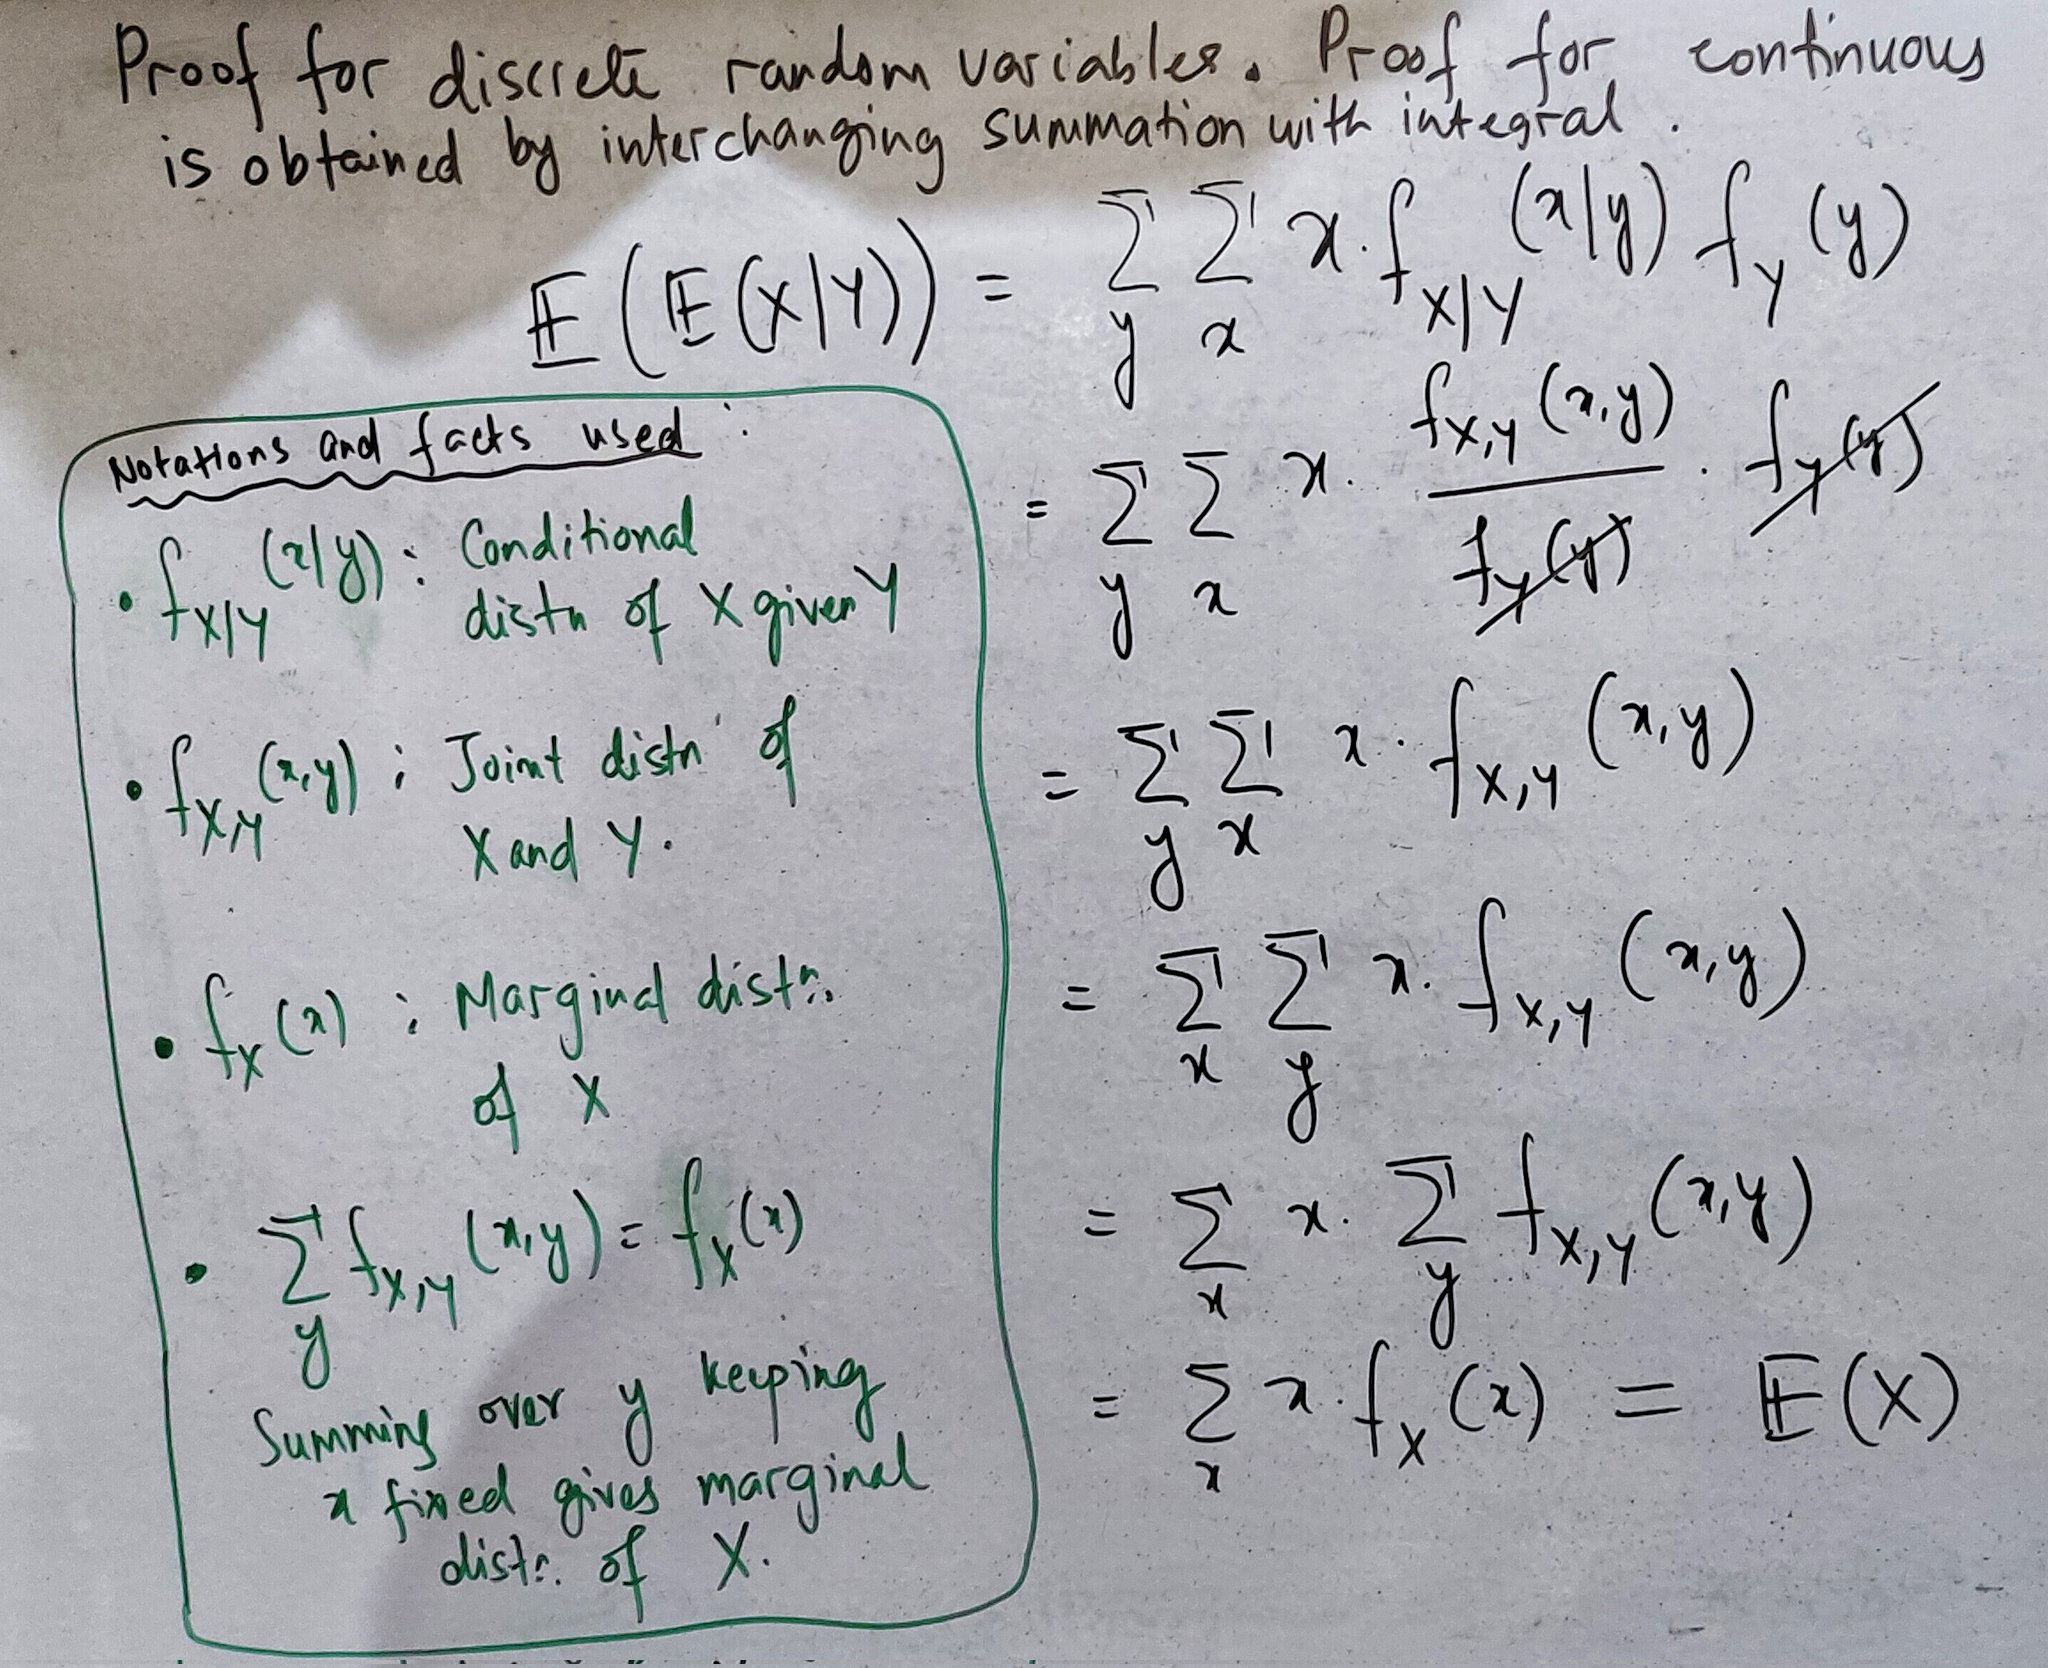 Proof for discrete random variables. Proof for continuous
is obtained by interchanging summation with integral.
𝔼(𝔼(X|Y)) = Σ_y Σ_x x·f_{X|Y}(x|y) f_Y(y)
= Σ_y Σ_x x· f_{X,Y}(x,y) / f_Y(y) · f_Y(y)
= Σ_y Σ_x x· f_{X,Y}(x,y)
= Σ_x Σ_y x· f_{X,Y}(x,y)
= Σ_x x· Σ_y f_{X,Y}(x,y)
= Σ_x x·f_X(x) = 𝔼(X)
Notations and facts used :
• f_{X|Y}(x|y) : Conditional
distn of X given Y
• f_{X,Y}(x,y) : Joint distn of
X and Y.
• f_X(x) : Marginal distn.
of X
• Σ_y f_{X,Y}(x,y) = f_X(x)
Summing over y keeping
x fixed gives marginal
distn. of X.